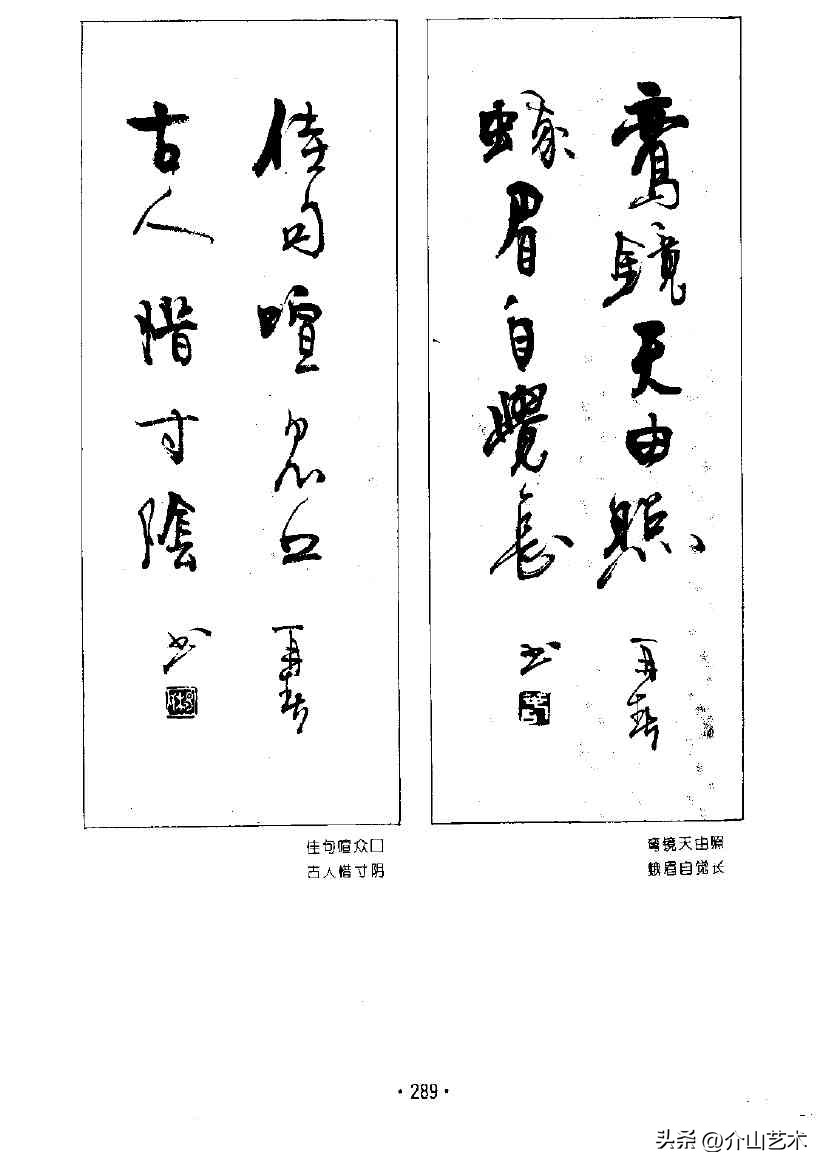 鸞鏡天由照
蛾眉自覺長
书
佳句喧眾口
古人惜寸陰
书
佳句喧众口
古人惜寸阴
鸾镜天由照
蛾眉自觉长
·289·
头条 @介山艺术